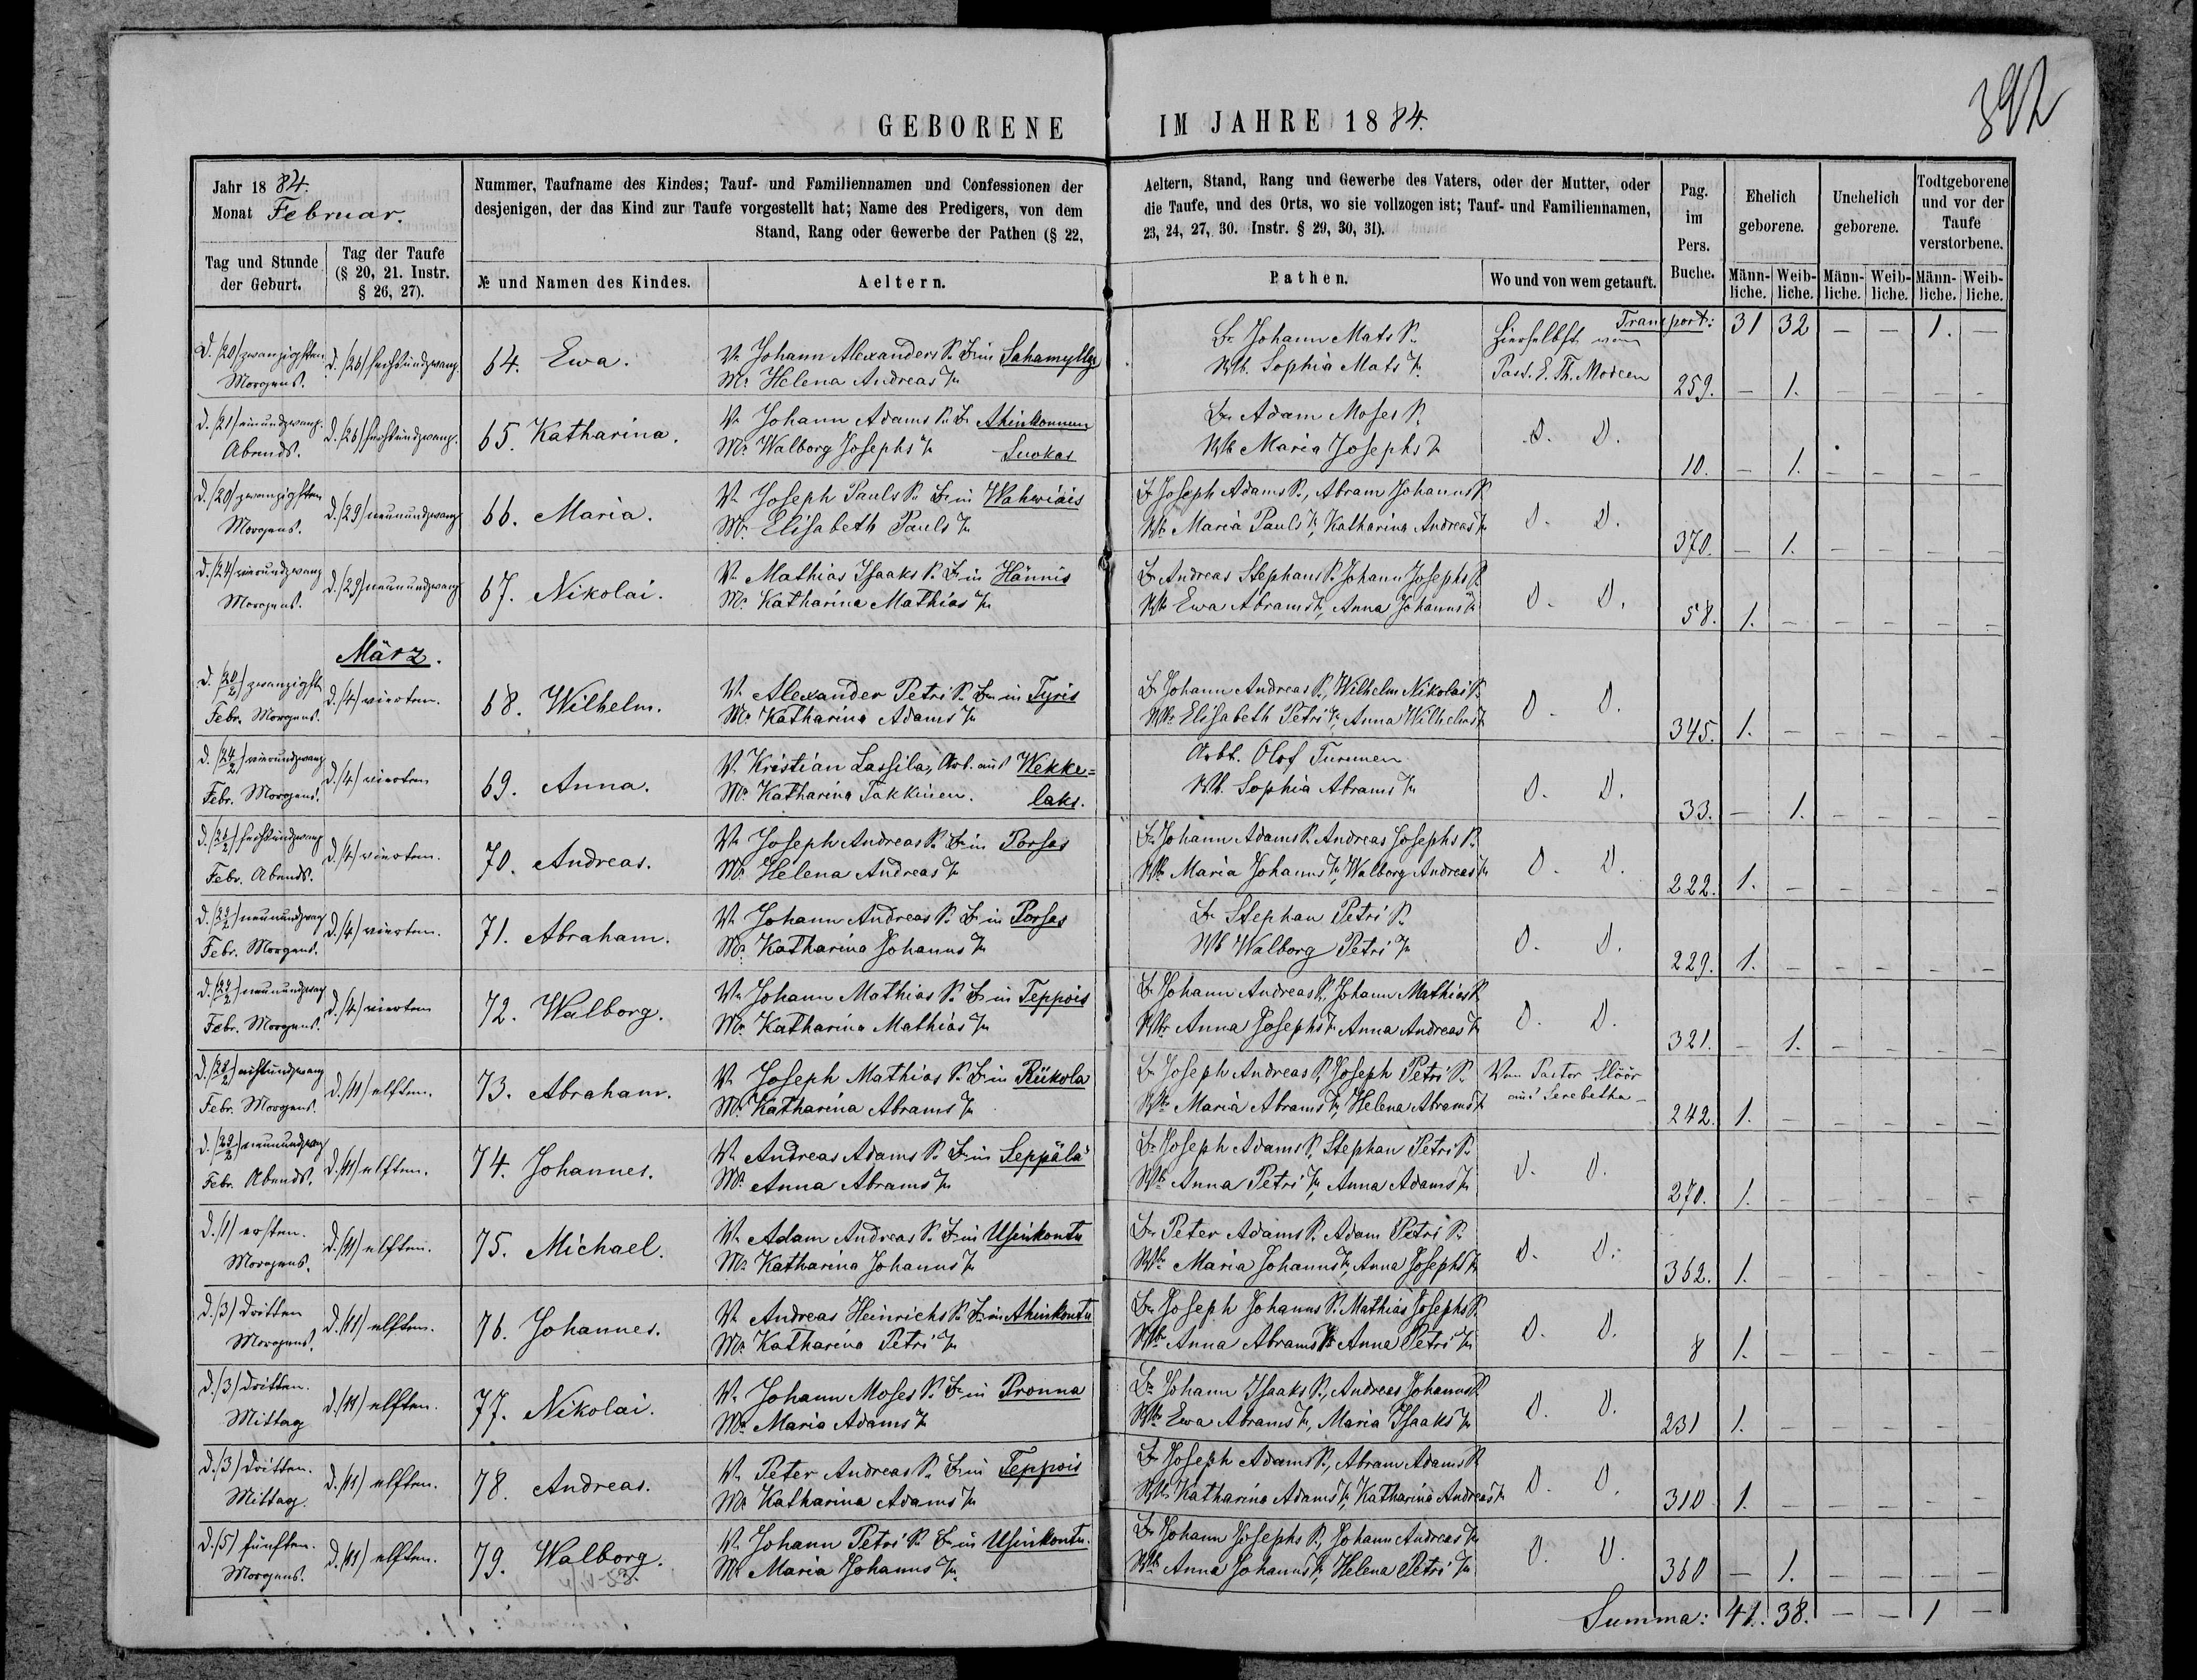 392
GEBORENE IM JAHRE 1884.
Jahr 1884.
Monat Februar.
Tag und Stunde der Geburt.
Tag der Taufe (§ 20, 21. Instr. § 26, 27).
Nummer, Taufname des Kindes; Tauf- und Familiennamen und Confessionen der Aeltern, Stand, Rang und Gewerbe des Vaters, oder der Mutter, oder
desjenigen, der das Kind zur Taufe vorgestellt hat; Name des Predigers, von dem die Taufe, und des Orts, wo sie vollzogen ist; Tauf- und Familiennamen,
Stand, Rang oder Gewerbe der Pathen (§ 22, 23, 24, 27, 30. Instr. § 29, 30, 31).
№ und Namen des Kindes.
Aeltern.
Pathen.
Wo und von wem getauft.
Pag. im Pers. Buche.
Ehelich geborene.
Unehelich geborene.
Todtgeborene und vor der Taufe verstorbene.
Männliche. Weibliche. Männliche. Weibliche. Männliche. Weibliche.
Transport: 31 32 — — 1. —
d. (20) zwanzigsten Morgens. d. (26) sechsundzwanz. 64. Ewa.
V. Johann Alexanders S. B. in Sahamyllye
M. Helena Andreas T.
B. Johann Mats S.
Wb. Sophia Mats T.
Hierselbst von
Past. E. Th. Modeen
259. — 1. — — — —
d. (21) einundzwanz. Abends. d. (26) sechsundzwanz. 65. Katharina.
V. Johann Adams S. B. Ahinkonnun
M. Walborg Josephs T. Suokas
B. Adam Moses S.
Wb. Maria Josephs T.
D. D. 10. — 1. — — — —
d. (20) zwanzigsten Morgens. d. (29) neunundzwanz 66. Maria.
V. Joseph Pauls S. B. in Wahwiais
M. Elisabeth Pauls T.
B. Joseph Adams S., Abram Johanns S.
Wb. Maria Pauls T., Katharina Andreas T.
D. D. 370. — 1. — — — —
d. (24) vierundzwanz Morgens. d. (29) neunundzwanz 67. Nikolai.
V. Mathias Isaaks S. B. in Hännis
M. Katharina Mathias T.
B. Andreas Stephans S. Johann Josephs S.
Wb. Ewa Abrams T., Anna Johanns T.
D. D. 58. 1. — — — — —
März.
d. (20/2) zwanzigsten Febr. Morgens. d. (4) vierten. 68. Wilhelm.
V. Alexander Petri S. B. in Tyris
M. Katharina Adams T.
B. Johann Andreas S., Wilhelm Nikolai S.
Wb. Elisabeth Petri T., Anna Wilhelms T.
D. D. 345. 1. — — — — —
d. (24/2) vierundzwanz Febr. Morgens. d. (4) vierten 69. Anna.
V. Kristian Lassila, Arb. aus Wekke=
M. Katharina Takkinen. laks.
Arbt. Olof Turunen
Wb. Sophia Abrams T.
D. D. 33. — 1. — — — —
d. (26/2) sechsundzwanz Febr. Abends. d. (4) vierten. 70. Andreas.
V. Joseph Andreas S. B. in Porsas
M. Helena Andreas T.
B. Johann Adams S. Andreas Josephs S.
Wb. Maria Johanns T., Walborg Andreas T.
D. D. 222. 1. — — — — —
d. (29/2) neunundzwanz Febr. Morgens. d. (4) vierten. 71. Abraham.
V. Johann Andreas S. B. in Porsas
M. Katharina Johanns T.
B. Stephan Petri S.
Wb. Walborg Petri T.
D. D. 229. 1. — — — — —
d. (29/2) neunundzwanz Febr. Morgens. d. (4) vierten 72. Walborg.
V. Johann Mathias S. B. in Teppois
M. Katharina Mathias T.
B. Johann Andreas S., Johann Mathias S.
Wb. Anna Josephs T. Anna Andreas T.
D. D. 321. — 1. — — — —
d. (28/2) achtundzwanz Febr. Morgens. d. (11) elften. 73. Abraham.
V. Joseph Mathias S. B. in Riikola
M. Katharina Abrams T.
B. Joseph Andreas S. Joseph Petri S.
Wb. Maria Abrams T., Helena Abrams T.
Von Pastor Slöör
aus Serebetha —
242. 1. — — — — —
d. (29/2) neunundzwanz Febr. Abends. d. (11) elften. 74. Johannes.
V. Andreas Adams S. B. in Seppälä
M. Anna Abrams T.
B. Joseph Adams S., Stephan Petri S.
Wb. Anna Petri T., Anna Adams T.
D. D. 270. 1. — — — — —
d. (1) ersten. Morgens. d. (11) elften. 75. Michael.
V. Adam Andreas S. B. in Usinkontu
M. Katharina Johanns T.
B. Peter Adams S. Adam Petri S.
Wb. Maria Johanns T., Anna Josephs T.
D. D. 362. 1. — — — — —
d. (3) dritten Morgens. d. (11) elften. 76. Johannes.
V. Andreas Heinrichs S. B. in Ahinkontu
M. Katharina Petri T.
B. Joseph Johanns S. Mathias Josephs S.
Wb. Anna Abrams T. Anna Petri T.
D. D. 8 1. — — — — —
d. (3) dritten. Mittag d. (11) elften. 77. Nikolai.
V. Johann Moses S. B. in Pronna
M. Maria Adams T.
B. Johann Isaaks S., Andreas Johanns S.
Wb. Ewa Abrams T., Maria Isaaks T.
D. D. 231 1. — — — — —
d. (3) dritten. Mittag. d. (11) elften. 78. Andreas.
V. Peter Andreas S. B. in Teppois
M. Katharina Adams T.
B. Joseph Adams S., Abram Adams S.
Wb. Katharina Adams T., Katharina Andreas T.
D. D. 310 1. — — — — —
d. (5) fünften. Morgens. d. (11) elften. 79. Walborg.
V. Johann Petri S. B. in Usinkontu.
M. Maria Johanns T.
B. Johann Josephs S., Johann Andreas T.
Wb. Anna Johanns T., Helena Petri T.
D. D. 360 — 1. — — — —
Summa: 41. 38. — — 1 —